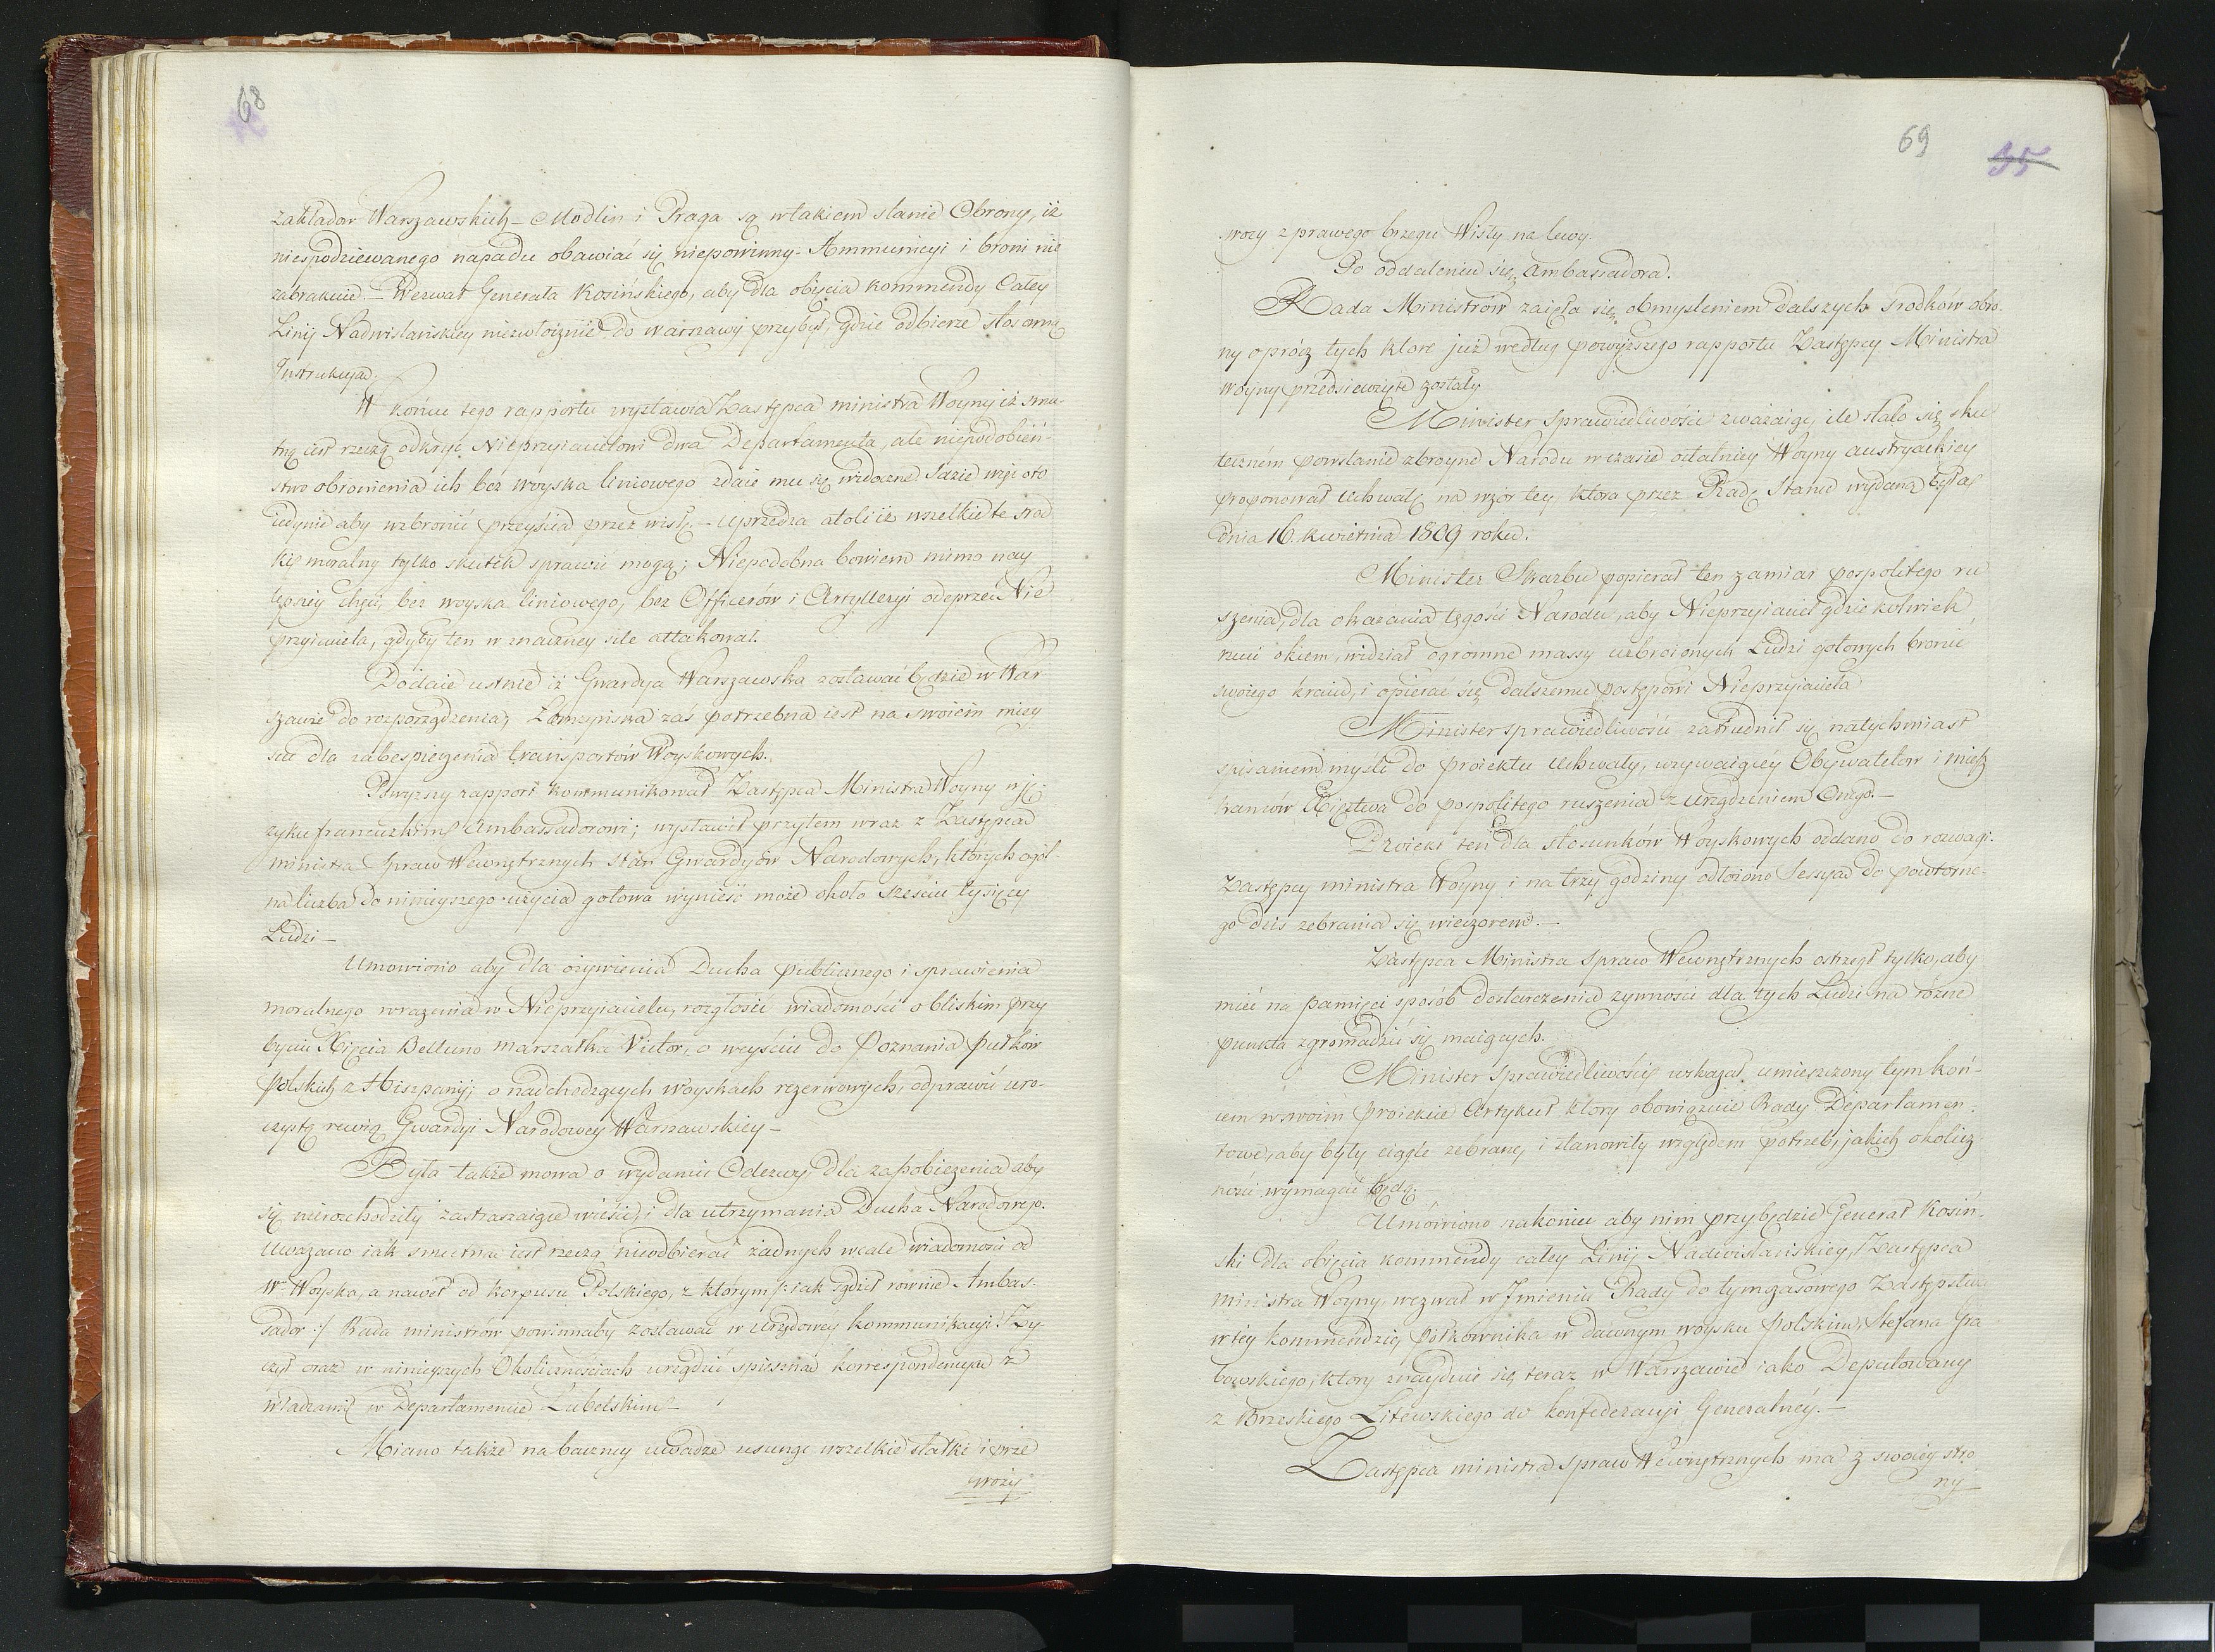 68
zakładow Warszawskich – Modlin i Praga są w takiem stanie Obrony, iż
niespodziewanego napadu obawiać się niepowinny. Ammunicyi i broni nie
zabraknie. – Wezwał Generała Kosińskiego, aby dla objęcia kommendy Całey
Linij Nadwislańskiey niezwłocznie do Warszawy przybył, gdzie odbierze stosowną
Instrukcyą.
W końcu tego rapportu wystawia Zastępca ministra Woyny iż smu-
tną iest rzeczą odkryć Nieprzyiacielowi dwa Departamenta, ale niepodobień-
stwo obronienia ich bez woyska liniowego zdaie mu się widoczne. Idzie więc oto
iedynie aby wzbronić przeyścia przez wisłę. – uprzedza atoli iż wszelkie te srod
ki moralny tylko skutek sprawić mogą; Niepodobna bowiem mimo nay
lepszey chęci, bez woyska liniowego, bez Officerów i Artylleryi odeprzeć Nie
przyiaciela, gdyby ten w znaczney sile attakował.
Dodaie ustnie iż Gwardya Warszawska zostawać będzie w War
szawie do rozporządzenia, Łomzyńska zaś potrzebna iest na swoiem miey
scu dla zabespieczenia transportów Woyskowych.
Powyższy rapport kommunikował Zastępca Ministra Woyny w ję-
zyku francuzkim Ambassadorowi; wystawił przytem wraz z Zastępcą
ministra Spraw Wewnętrznych stan Gwardyów Narodowych, których ogól-
na liczba do ninieyszego użycia gotowa wynieść może około sześciu tysięcy
Ludzi –
Umowiono aby dla ożywienia Ducha publicznego i sprawienia
moralnego wrażenia w Nieprzyiacielu, rozgłosić wiadomości o bliskim przy
byciu Xięcia Belluno marszałka Victor, o weyściu do Poznania pułków
Polskich z Hiszpanij, o nadchodzących woyskach rezerwowych, odprawić uro-
czystą rewią Gwardyi Narodowey Warszawskiey –
Była także mowa o wydaniu Odezwy dla zapobieżenia aby
się nierozchodziły zastraszaiące wieści, i dla utrzymania Ducha Narodowego.
Uważano iak smutna iest rzeczą nieodbierać żadnych wcale wiadomości od
W. Woyska, a nawet od korpusu Polskiego, z którym /: iak sądził rownie Ambas-
sador :/ Rada ministrów powinnaby zostawać w Urzędowey kommunikacyi! Ży-
czył oraz w ninieyszych Okolicznościach urządzić spieszną korrespondencyą z
władzami w Departamencie Lubelskim –
Miano także na baczney uwadze usunąć wszelkie statki i prze
wozy
69
35
wozy z prawego brzegu Wisły na lewy.
Po oddaleniu się Ambassadora.
Rada Ministrów zaięła się obmyśleniem dalszych środków obro-
ny oprócz tych ktore już według powyższego rapportu Zastępcy Ministra
Woyny przedsięwzięte zostały.
Minister Sprawiedliwości zważaiąc, ile stało się sku
tecznem powstanie zbroyne Narodu w czasie ostatniey Woyny austryackiey
proponował uchwałę na wzór tey, ktora przez Radę Stanu wydana była
dnia 16. kwietnia 1809 roku.
Minister Skarbu popierał ten zamiar pospolitego ru
szenia, dla okazania tęgości Narodu, aby Nieprzyiaciel gdziekolwiek
rzuci okiem, widział ogromne massy uzbroionych Ludzi gotowych bronić
swoiego kraiu, i opierać się dalszemu postępowi Nieprzyiaciela
Minister sprawiedliwości zatrudnił się natychmiast
spisaniem myśli do proiektu Uchwały, wzywaiącey Obywatelow i miesz
kańców Xięstwa do pospolitego ruszenia z urządzeniem Onego. –
Proiekt ten dla stosunków Woyskowych oddano do rozwagi
Zastępcy ministra Woyny i na trzy godziny odłożono Sessyą do powtorne-
go dziś zebrania się wieczorem. –
Zastępca Ministra Spraw Wewnętrznych ostrzegł tylko, aby
mieć na pamięci sposób dostarczenia żywności dla tych Ludzi na różne
punkta zgromadzić się maiących.
Minister Sprawiedliwości wskazał umieszczony tym koń-
cem w swoim proiekcie Artykuł ktory obowiązuie Rady Departamen-
towe, aby były ciągle zebrane, i stanowiły względem potrzeb, jakich okolicz
ności wymagać będą.
Umówiono nakoniec aby nim przybędzie Generał Kosiń-
ski dla objęcia kommendy całey Linij Nadwislańskiey, Zastępca
Ministra Woyny, wezwał w Imieniu Rady do tymczasowego Zastępstwa
w tey kommendzie, półkownika w dawnym woysku Polskim, Stefana Gra
bowskiego, ktory znayduie się teraz w Warszawie iako Deputowany
z Brzeskiego Litewskiego do konfederacyi Generalney. –
Zastępca ministra Spraw Wewnętrznych ma z swoiey stro
ny